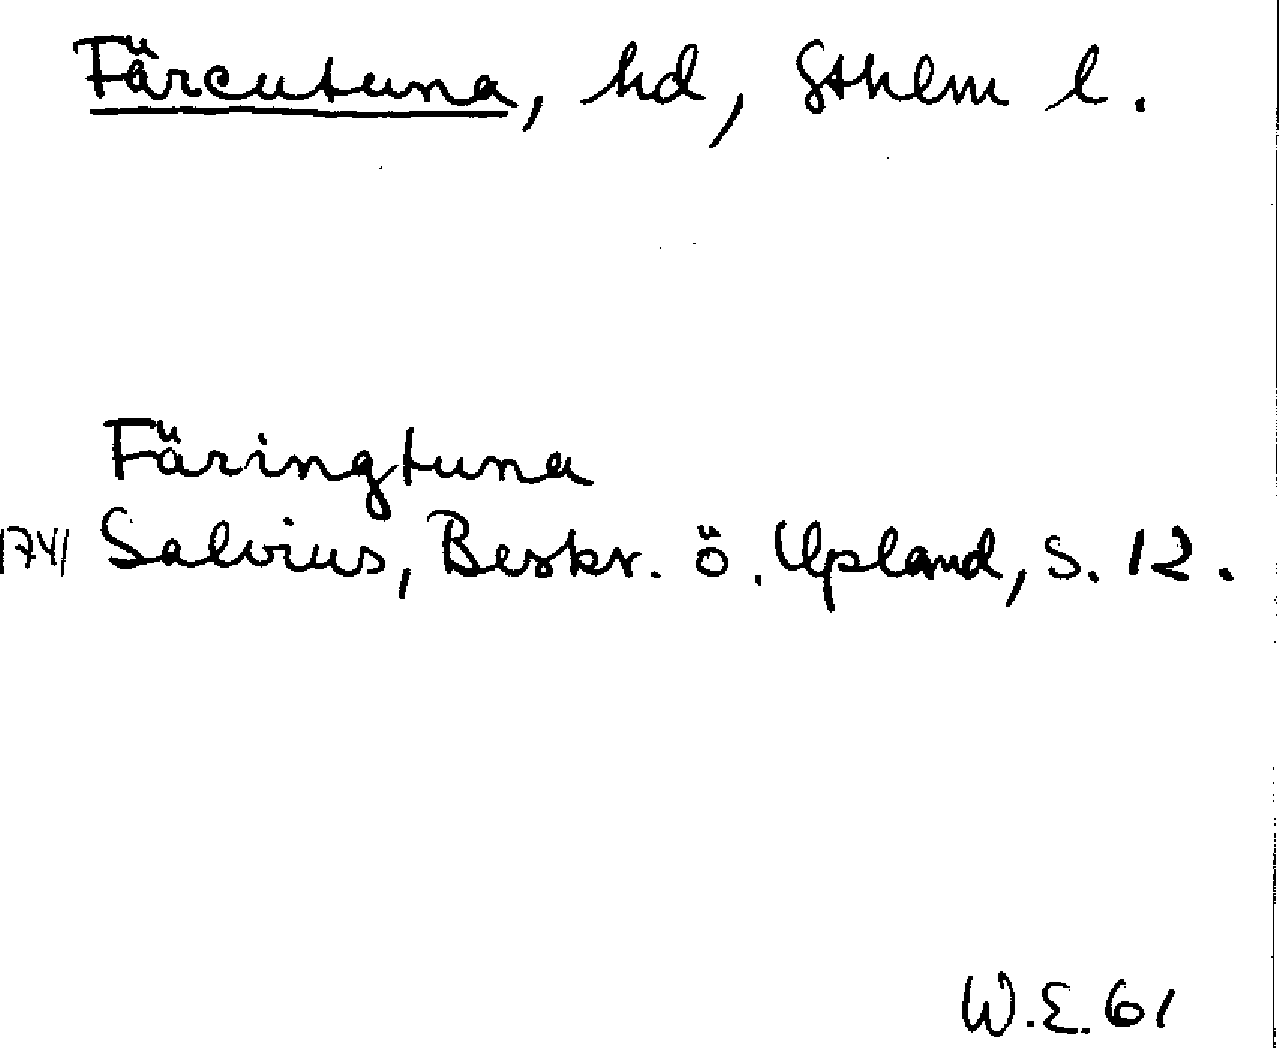 Färcutuna, hd, Sthlm l.
Färingtuna
1741 Salvius, Beskr. ö. Upland, S. 12.
W.E. 61